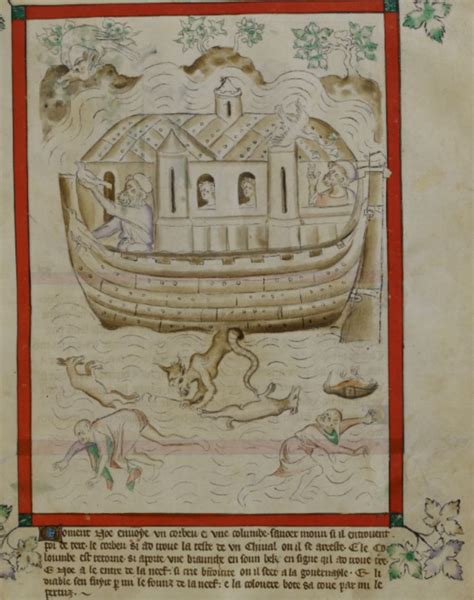 Coment Noe enuoye vn corbeu e vne columbe sauoer moun si il entrouent
poi de tere. le corbeu si ad troue la teste de vn Chiual ou il se areste E le co
loumbe est retorne si aporte vne braunche en soun bek en signe qil ad troue tere
E Noe a le entre de la neef. si crie ou il seet a la gouernayle. E li
diable sen fuyt par mi le founz de la neef. e la colouere bote sa coue par mi le
pertuz.